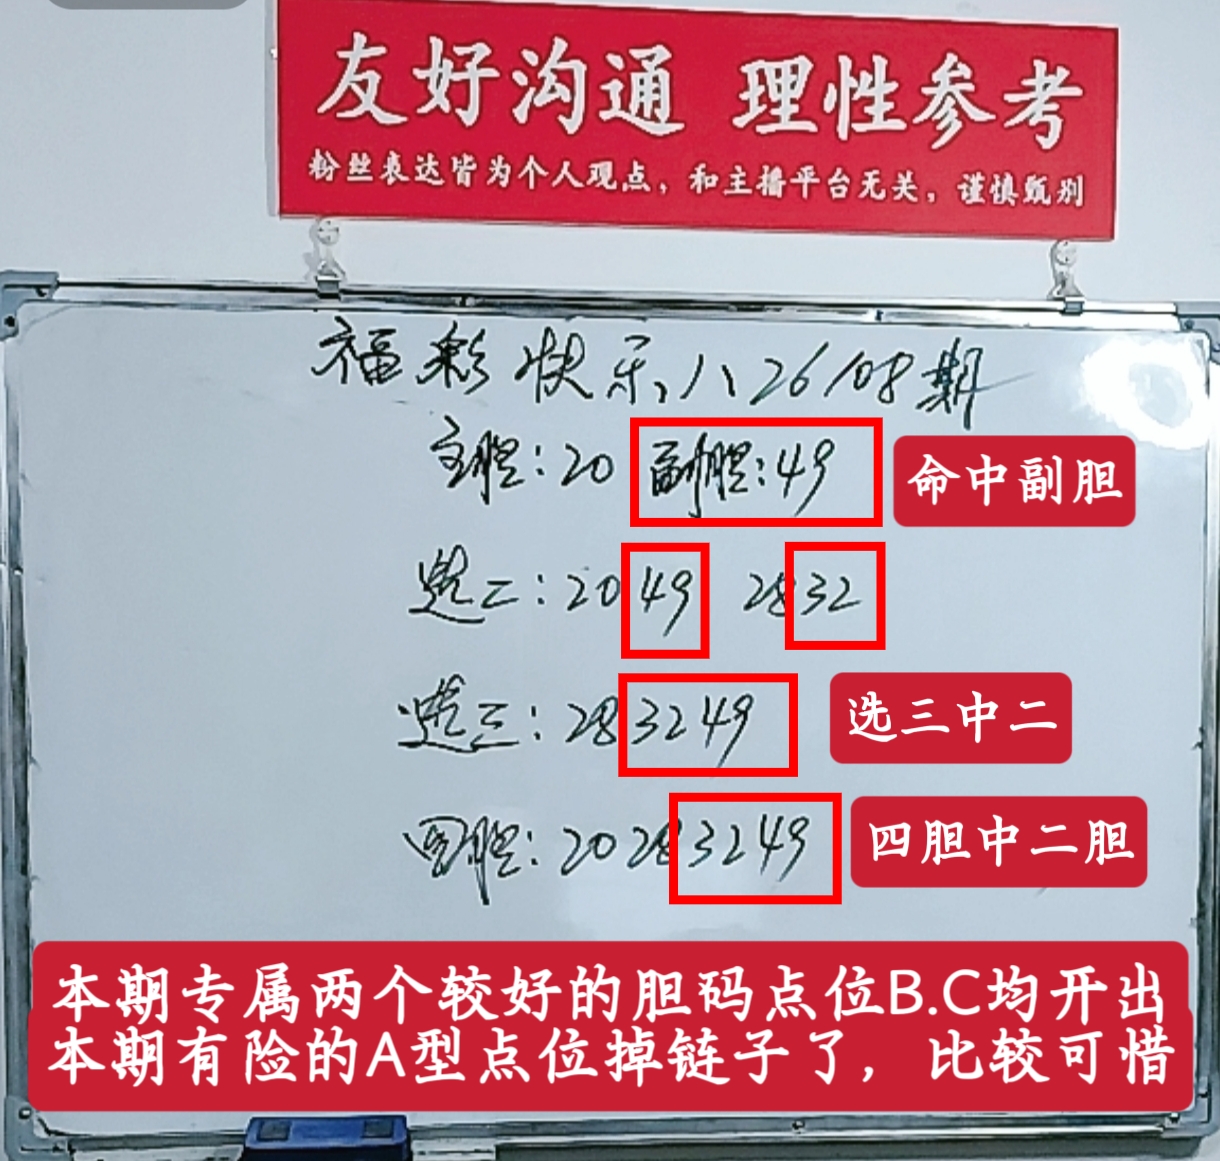 友好沟通 理性参考
粉丝表达皆为个人观点，和主播平台无关，谨慎甄别
福彩快乐八26108期
主胆：20 副胆：49
命中副胆
选二：2049 2832
选三：283249
选三中二
四胆：20283249
四胆中二胆
本期专属两个较好的胆码点位B.C均开出
本期有险的A型点位掉链子了，比较可惜